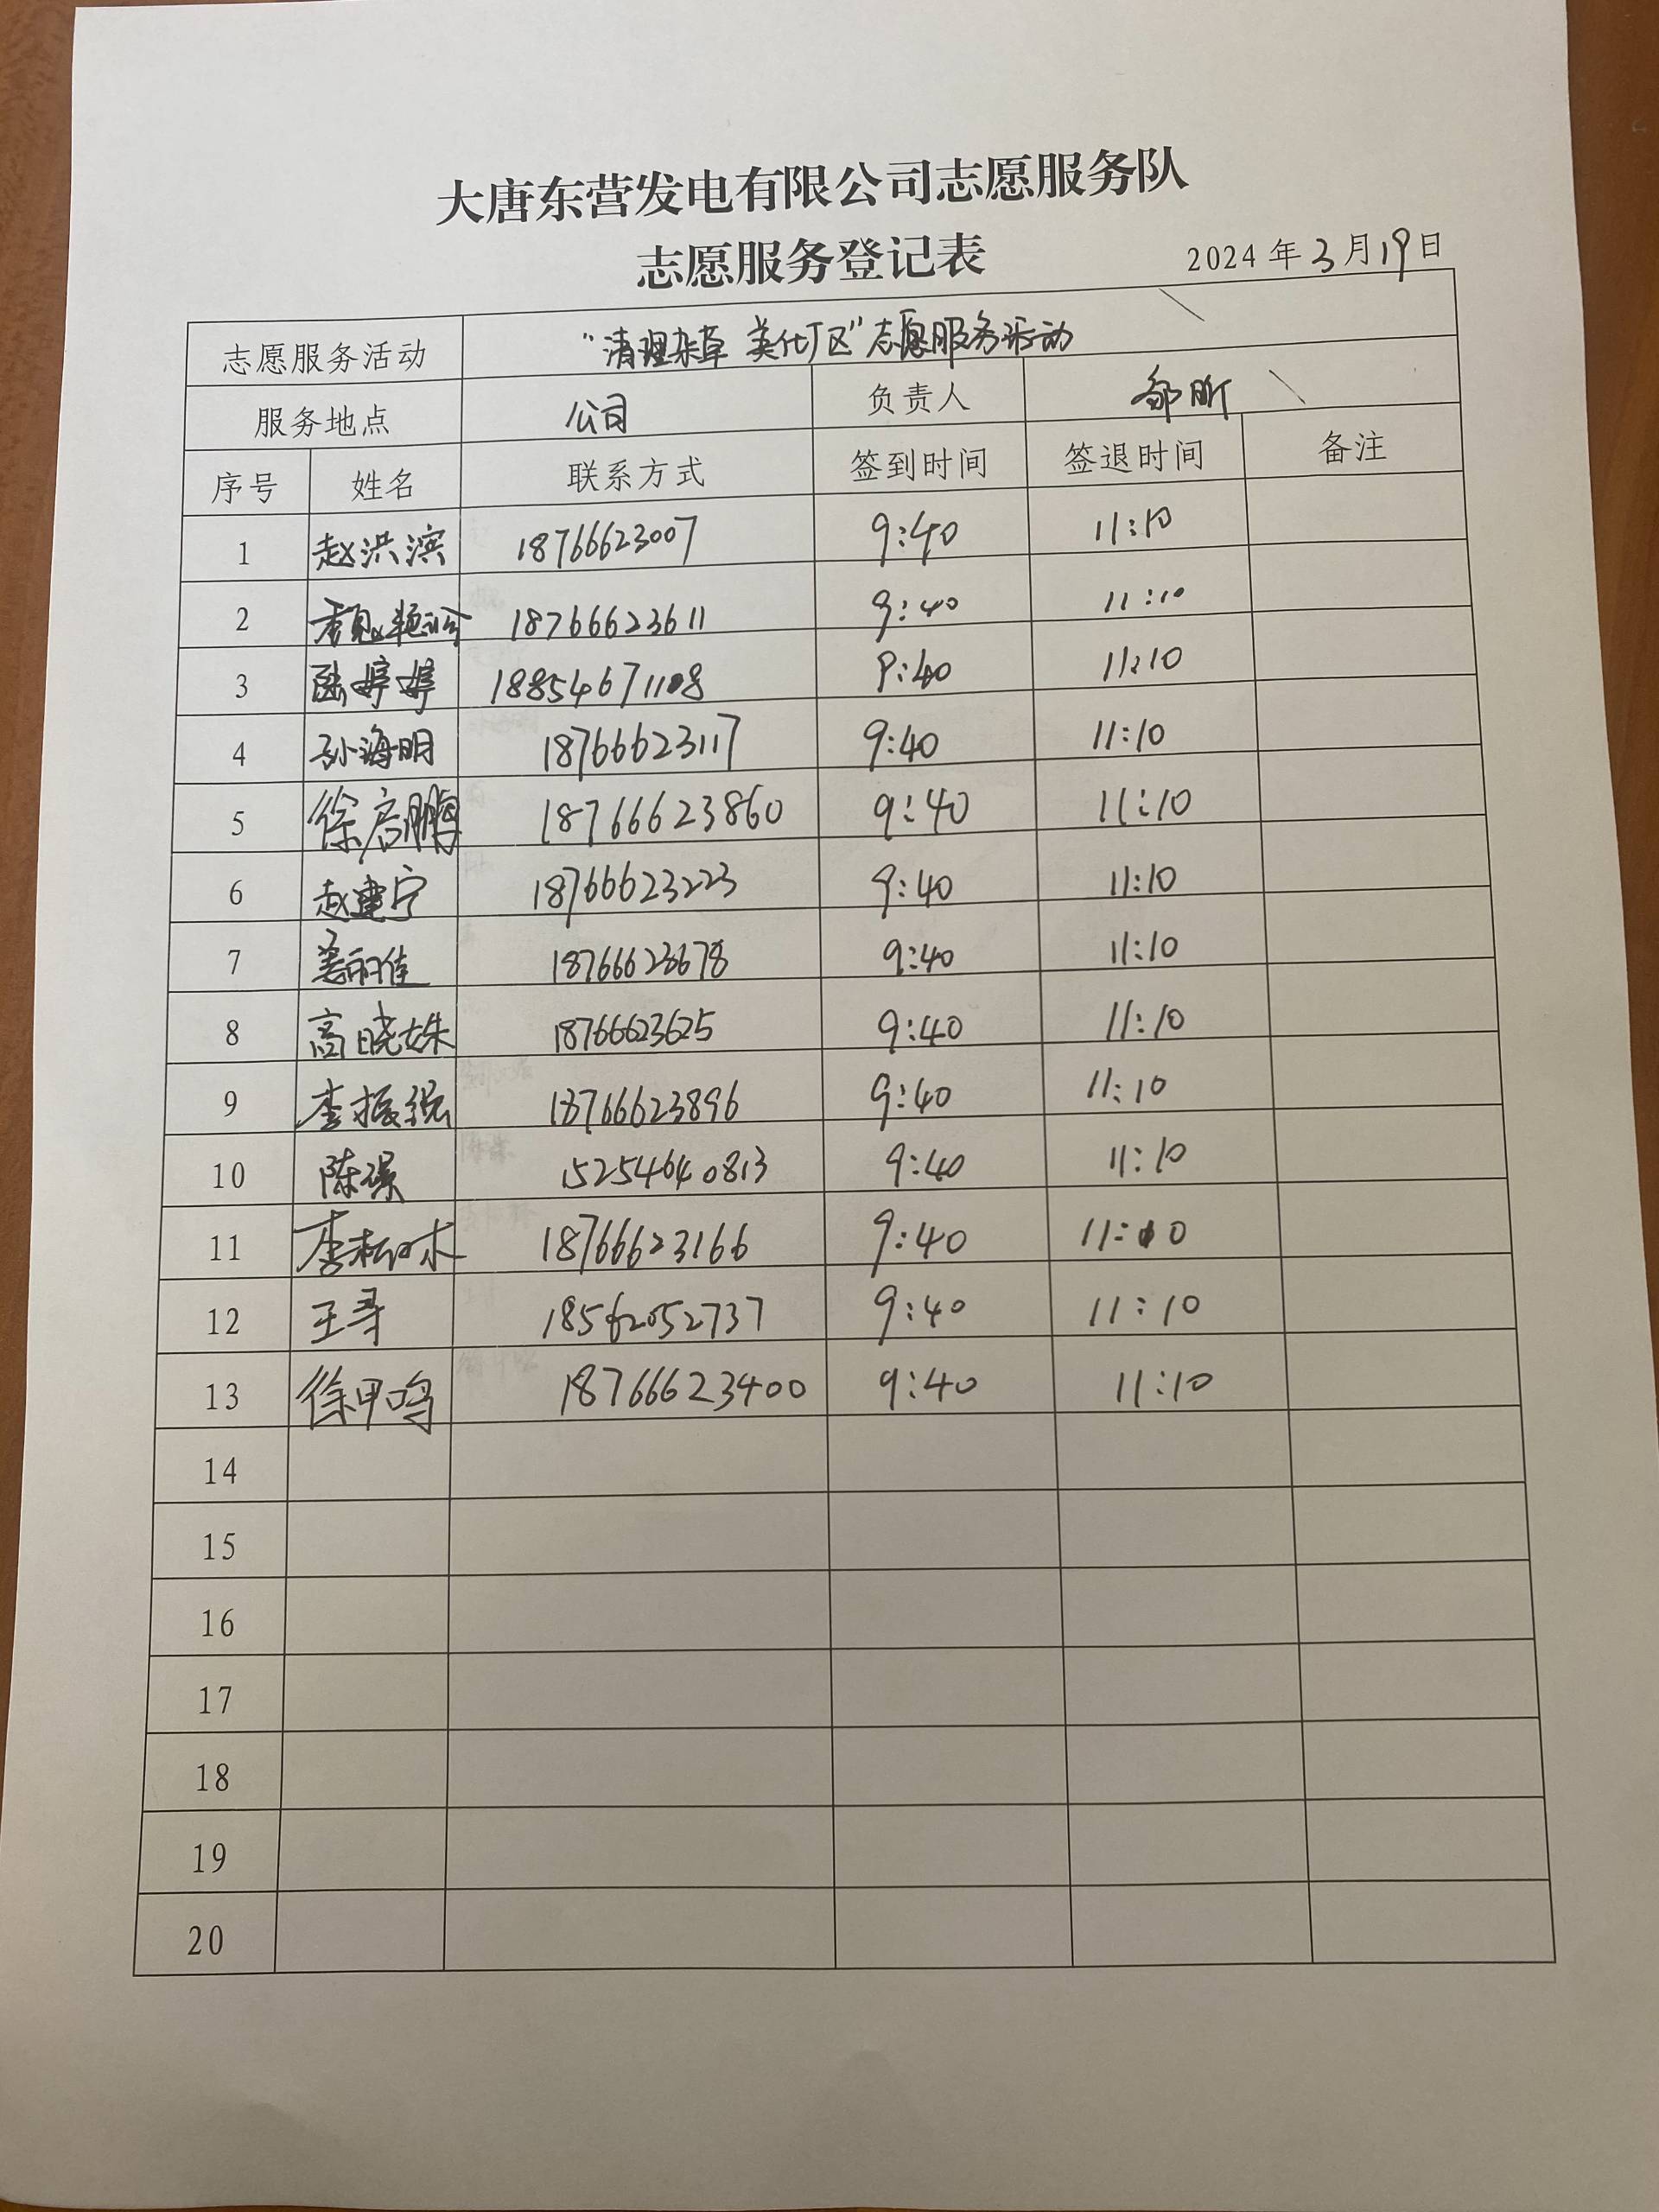 大唐东营发电有限公司志愿服务队
志愿服务登记表
2024年3月19日
志愿服务活动 "清理杂草 美化厂区"志愿服务活动
服务地点 公司 负责人 邹昕
序号 姓名 联系方式 签到时间 签退时间 备注
1 赵洪滨 18766623007 9:40 11:10
2 18766623611 9:40 11:10
3 陆婷婷 18854671108 9:40 11:10
4 孙海明 18766623117 9:40 11:10
5 徐启鹏 18766623860 9:40 11:10
6 赵建宁 18766623223 9:40 11:10
7 姜丽佳 18766623678 9:40 11:10
8 高晓姝 18766623625 9:40 11:10
9 李振强 18766623896 9:40 11:10
10 陈强 15254640813 9:40 11:10
11 18766623166 9:40 11:10
12 王寻 18562052737 9:40 11:10
13 徐甲鸣 18766623400 9:40 11:10
14
15
16
17
18
19
20